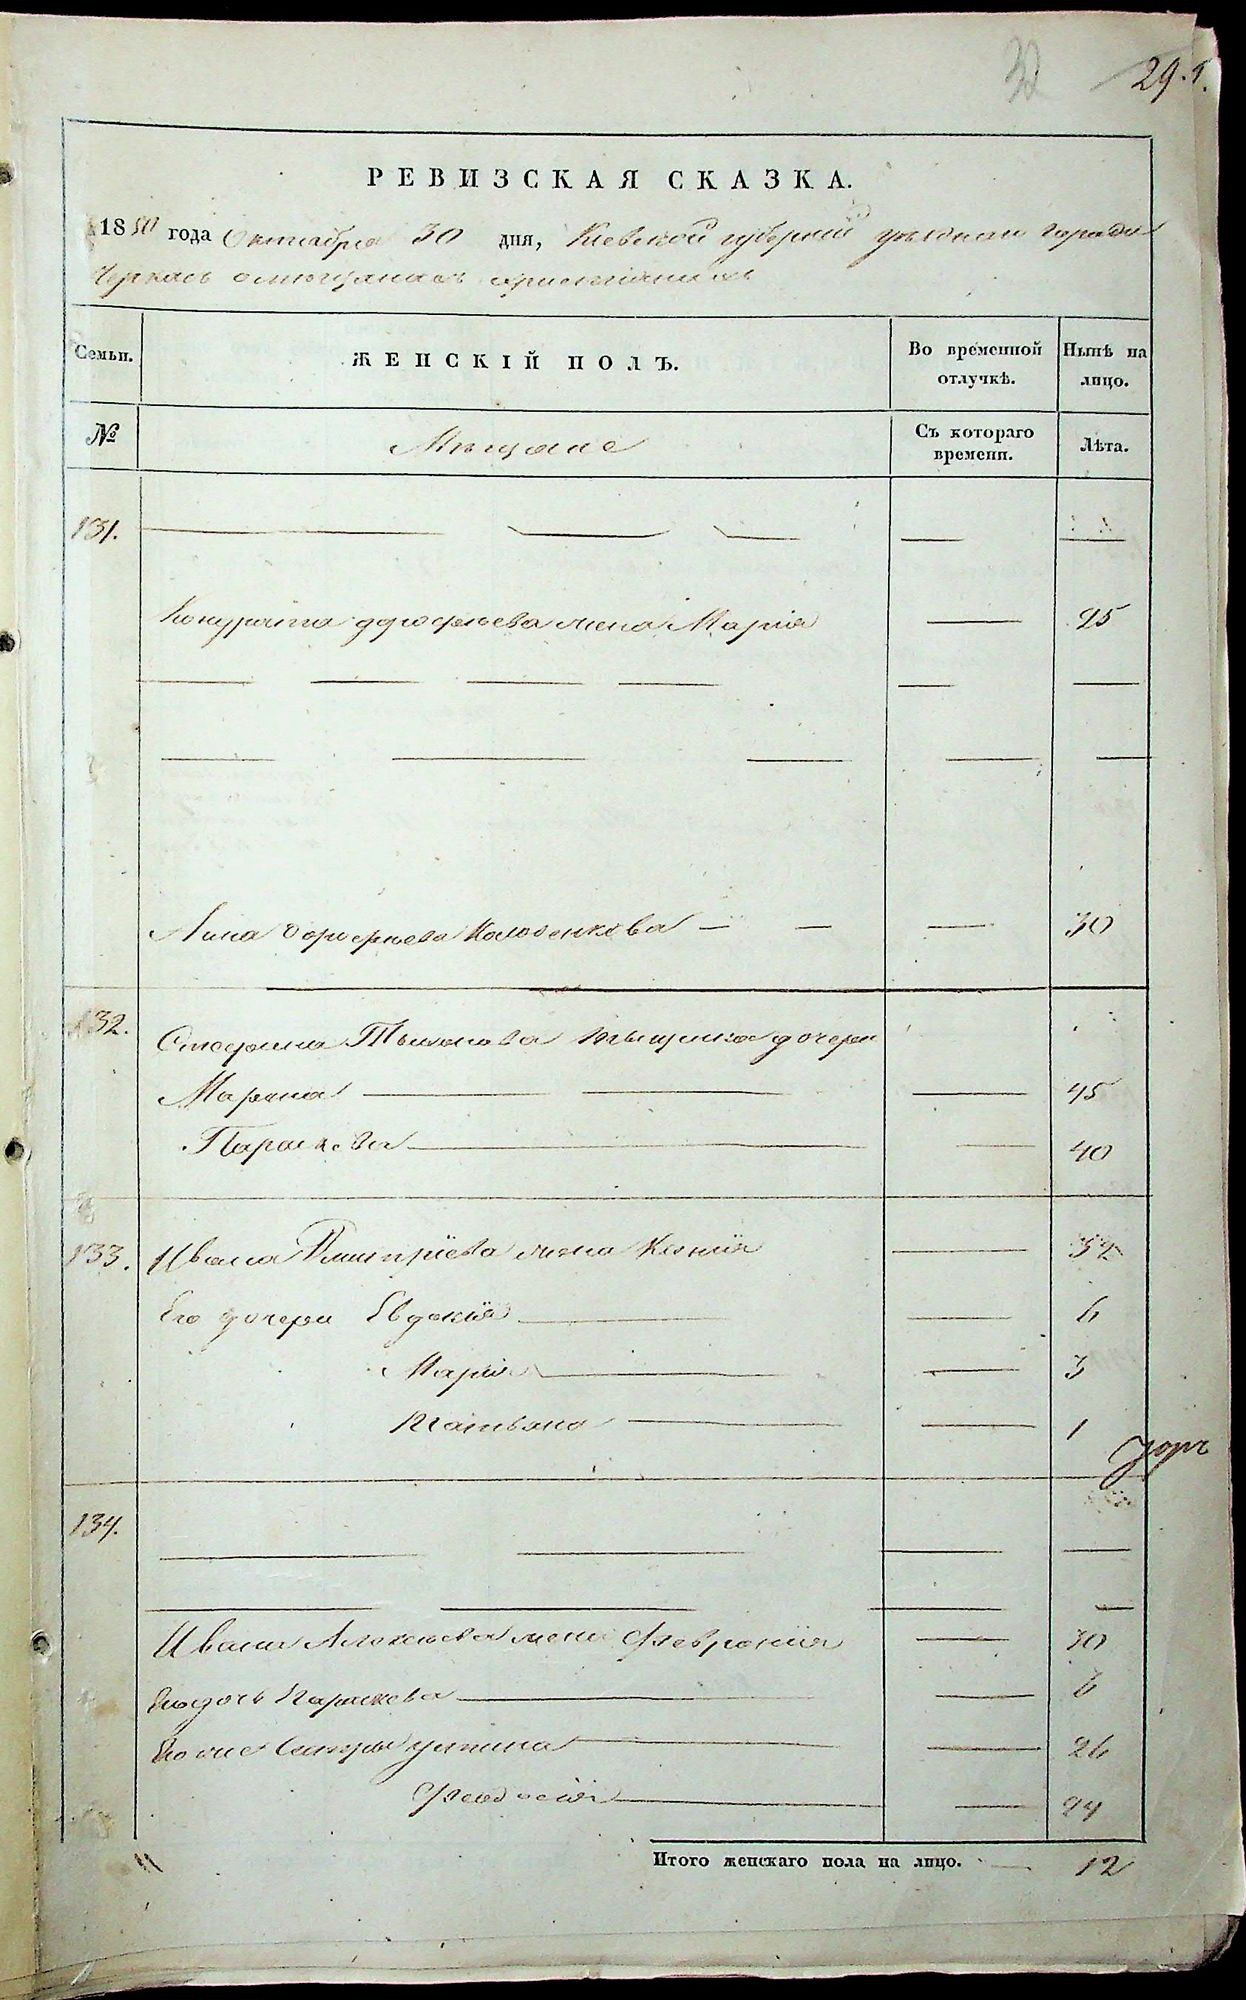 32
29.
РЕВИЗСКАЯ СКАЗКА.
1850 года Октября 30 дня, Кіевской губерніи уезднаго города
Черкасъ о мещанахъ христіянахъ
Семьи.
ЖЕНСКІЙ ПОЛЪ.
Во временной отлучкѣ.
Нынѣ на лицо.
№
Мещане
Съ котораго времени.
Лѣта.
131.
жена Марія 25
Анна Дорофеева 30
132.
дочери
Марина 45
Параскева 40
133. Ивана Дмитріева жена Ксенія 32
Его дочери Евдокія 6
Марія 3
Татьяна 1
134.
Ивана Алексеева жена Февронія 30
Его дочь Параскева
Его же сестры Устина 26
Феодосія 24
Итого женскаго пола на лицо. 12